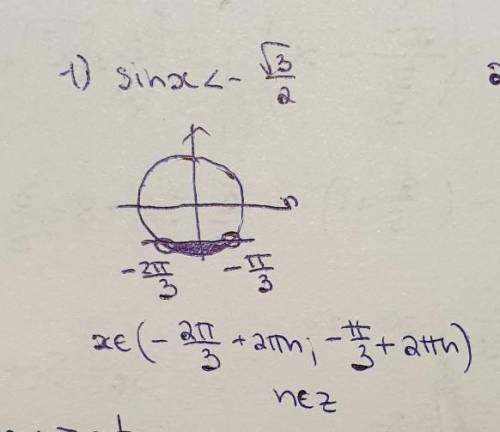 1) sinx < - √3/2
-2π/3 -π/3
x∈(-2π/3 + 2πn; -π/3 + 2πn)
n∈z